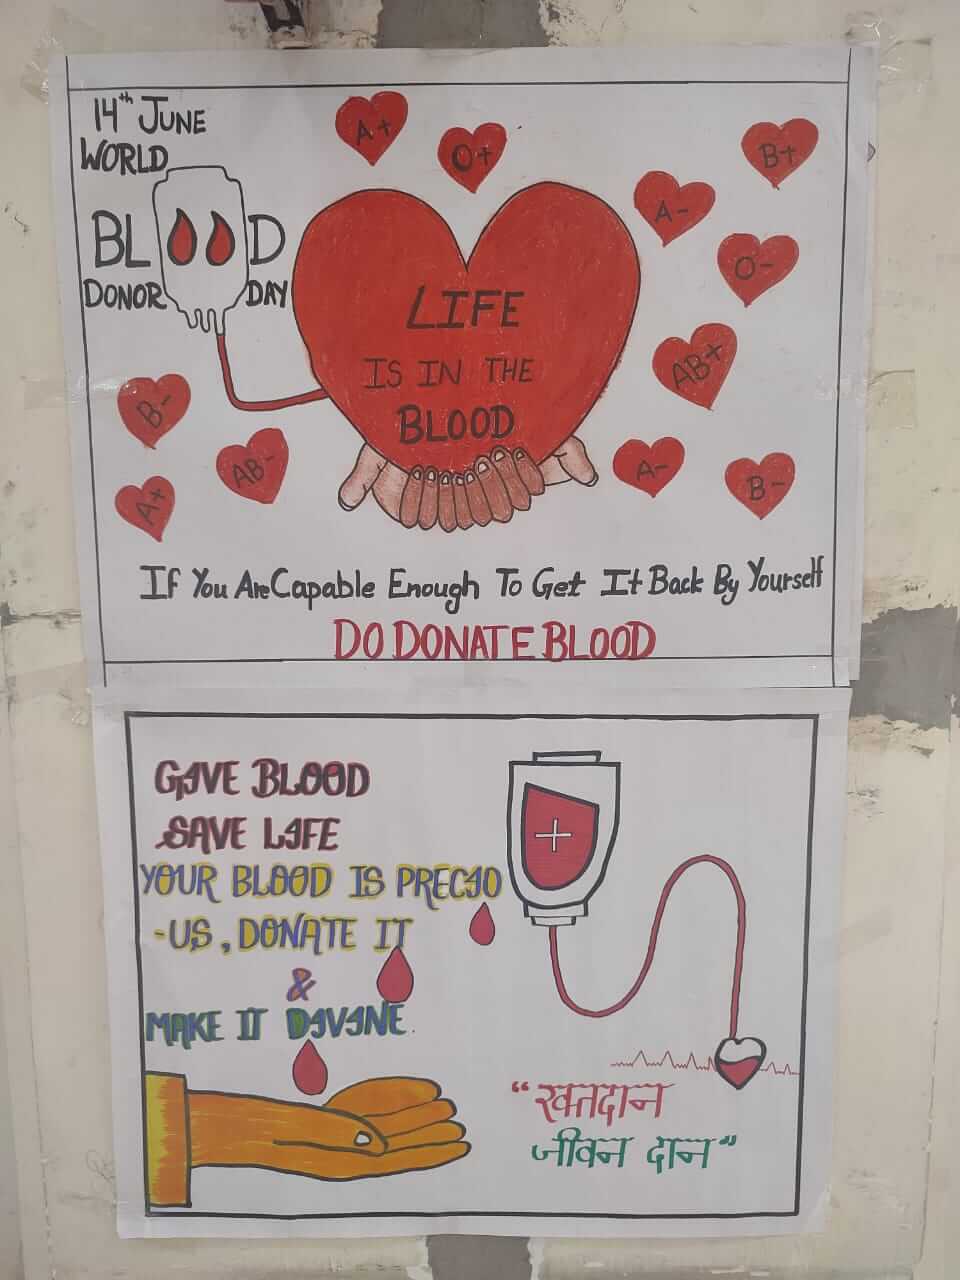 14th JUNE
WORLD
BLOOD
DONOR DAY
A+
O+
B+
A-
O-
AB+
LIFE
IS IN THE
BLOOD
B-
AB-
A+
A-
B-
If You Are Capable Enough To Get It Back By Yourself
DO DONATE BLOOD
GIVE BLOOD
SAVE LIFE
YOUR BLOOD IS PRECIO
-US, DONATE IT
&
MAKE IT DIVINE.
“रक्तदान
जीवन दान”